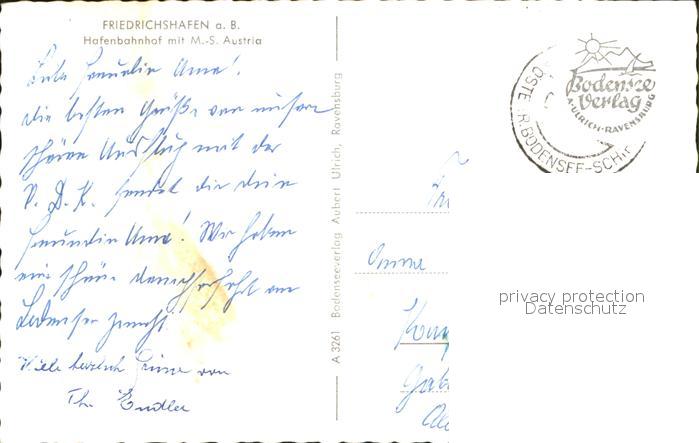 FRIEDRICHSHAFEN a. B.
Hafenbahnhof mit M.-S. Austria
Liebe Freundin Anna!
die besten Grüße von unserm
schönen Ausflug mit der
V. D. K. sendet dir dein
Freundin Anna! Wir haben
eine schöne Dampferfahrt am
Bodensee gemacht!
Viele herzlich Grüsse von
Th. Endler
A 3261 Bodenseeverlag Aubert Ulrich, Ravensburg
Bodensee
Verlag
A. ULRICH · RAVENSBURG
BODENSEE-SCHIF
privacy protection
Datenschutz